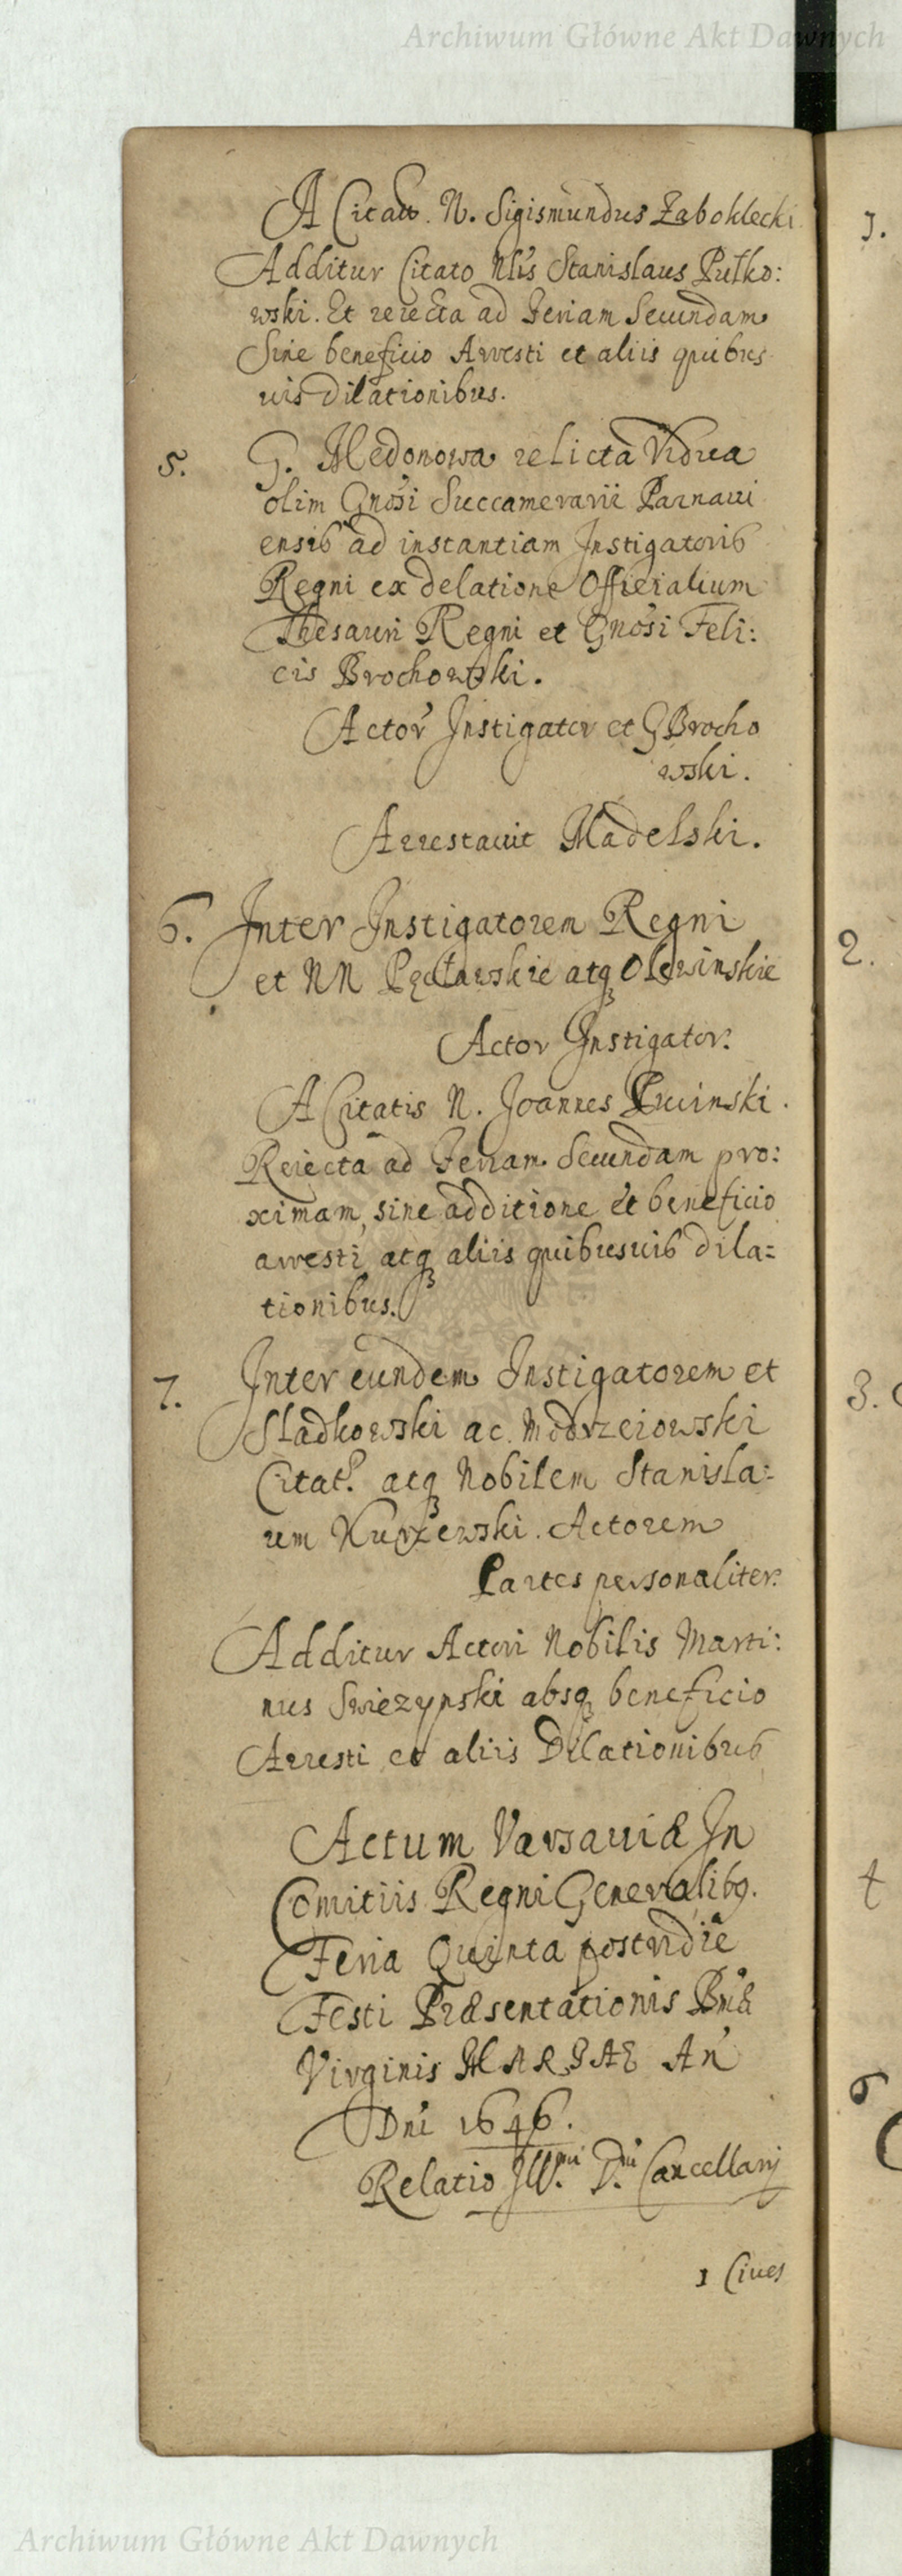 Archiwum Główne Akt Dawnych
A Citato. N. Sigismundus Zaboklecki
Additur Citato Nlis Stanislaus Putko:
wski. Et reiecta ad Feriam Secundam
Sine beneficio Arresti et aliis quibus
uis Dilationibus.
5. G. Medonowa relicta Vidua
olim Gnosi Succamerarii Parnaui
ensis ad instantiam Instigatoris
Regni ex delatione Officialium
Thesauri Regni et Gnosi Feli:
cis Brochowski.
Actor Instigator et G Brocho
wski.
Arrestauit Madelski.
6. Inter Instigatorem Regni
et NN atq
Actor Instigator.
A Citatis N. Joannes
Reiecta ad Feriam Secundam pro:
ximam, sine additione et beneficio
arresti atq aliis quibusuis dila:
tionibus.
7. Inter eundem Instigatorem et
Sladkowski ac Modrzeiowski
Citat. atq Nobilem Stanisla:
um Kurzewski. Actorem
Partes personaliter.
Additur Actori Nobilis Marti:
nus Swiezynski absq beneficio
Arresti et aliis Dilationibus
Actum Varsauiæ In
Comitiis Regni Generalibq.
Feria Quinta postridie
Festi Præsentationis Bmæ
Virginis MARIAE An
Dni 1646.
Relatio Illmi Dni Cancellarij
1 Ciues
1.
2.
3.
6
Archiwum Główne Akt Dawnych